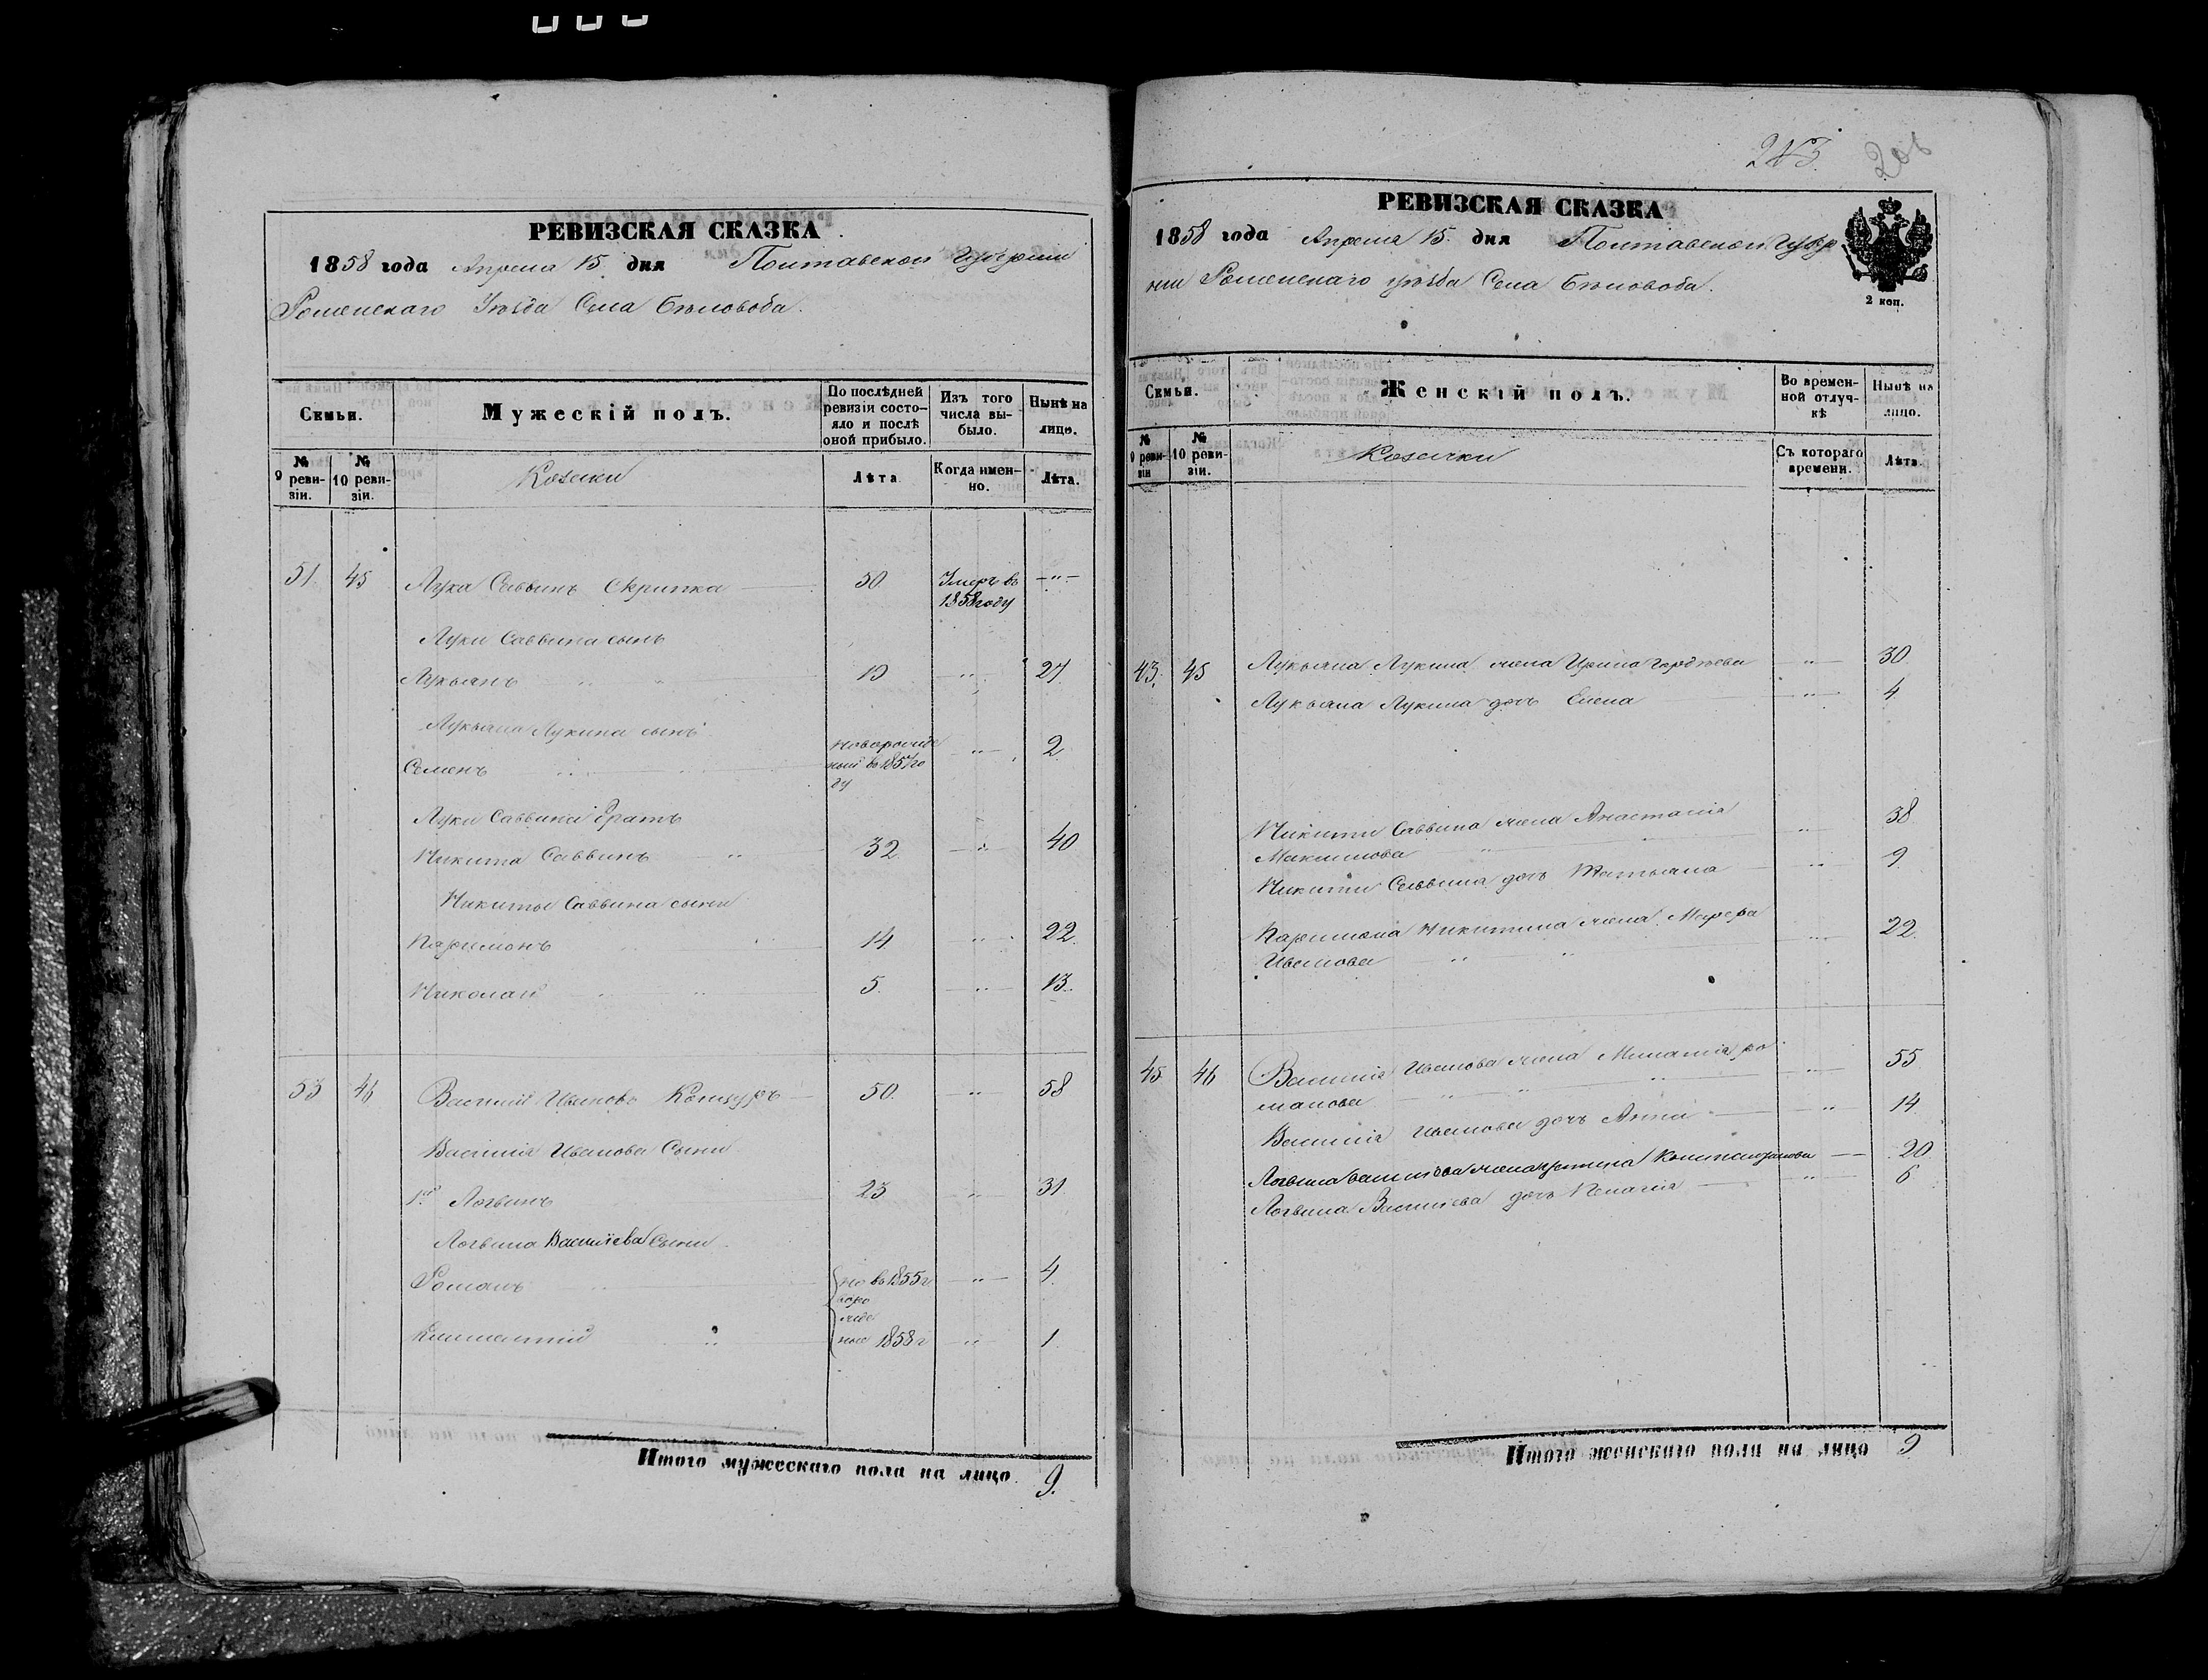 РЕВИЗСКАЯ СКАЗКА
1858 года Апреля 15 дня Полтавской Губернии
Роменскаго Уѣзда Села Бѣловода.
Семьи.
Мужескій полъ.
По послѣдней ревизіи состояло и послѣ оной прибыло.
Изъ того числа выбыло.
Нынѣ на лицо.
№ 9 ревизіи.
№ 10 ревизіи.
Козаки
Лѣта
Когда именно.
Лѣта.
51. 45 Лука Саввинъ Скрипка 50. Умеръ въ 1858 году -"-
Луки Саввина сынъ
Лукьянъ " " 19 " 27
Лукьяна Лукина сынъ
Семенъ " " новорожденый въ 1857 году " 2
Луки Саввина братъ
Никита Саввинъ " 32 " 40
Никиты Саввина сыны
Парѳимонъ " " 14 " 22
Николай " " 5. " 13.
53 46 Василій Ивановъ Концуръ 50. " 58
Василія Иванова Сыны
1й Логвинъ 23 " 31
Логвина Василіева Сыны
Романъ но въ 1855 г " 4
воро
жде
Климентій " ные 1858 г " 1
Итого мужескаго пола на лицо 9.
243. 206
РЕВИЗСКАЯ СКАЗКА
1858 года Апреля 15. дня Полтавской Губер
нии Роменскаго уѣзда Села Бѣловода.
2 коп.
Семьи.
Женскій полъ.
Во временной отлучкѣ
Нынѣ на лицо.
№ 9 ревизіи
№ 10 ревизіи.
Козачки
Съ котораго времени.
Лѣта.
43. 45 Лукьяна Лукина жена Ирина Гордѣева " 30
Лукьяна Лукина дочь Елена " 4
Никиты Саввина жена Анастасія
Максимова " " " 38
Никиты Саввина дочь Татьяна " 9
Парѳимона Никитина жена
Иванова " " " 22
45 46 Василія Иванова жена Меланія ро
манова " " " 55
Василія Иванова дочь Анна " 14
Логвина Василіева жена Устина Константинова — 20
Логвина Василіева дочь Пелагія " 6
Итого женскаго пола на лицо 9